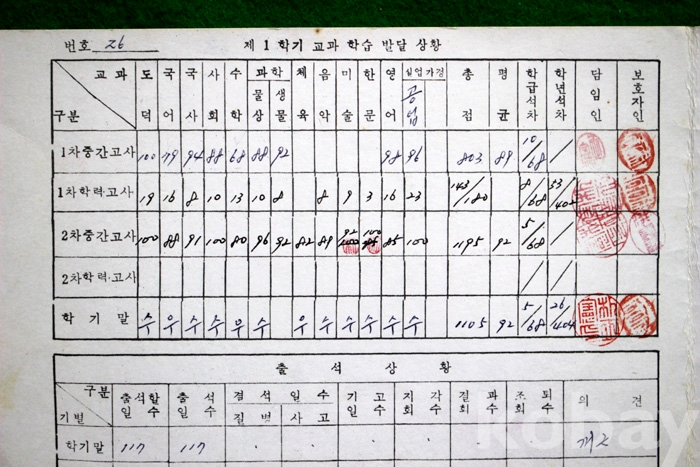 번호 26 제 1 학기 교과 학습 발달 상황
교과 도덕 국어 국사 사회 수학 과학 체육 음악 미술 한문 영어 실업가정 총점 평균 학급석차 학년석차 담임인 보호자인
구분 물상 생물 공업
1차중간고사 100 79 94 88 68 88 92 98 96 803 89 10/68
1차학력고사 19 16 8 10 13 10 8 8 9 3 16 23 143/180 8/68 53/402
2차중간고사 100 88 91 100 80 96 92 82 89 92 100 85 100 1195 92 5/68
2차학력고사
학기말 수 우 수 수 우 수 우 수 수 수 수 수 1105 92 5/68 26/404
출석상황
구분 출석할일수 출석일수 결석일수 기고일수 지각회수 결과회수 조퇴회수 의견
기별 질병 사고
학기말 117 117 · · · · · · 개근
kobay